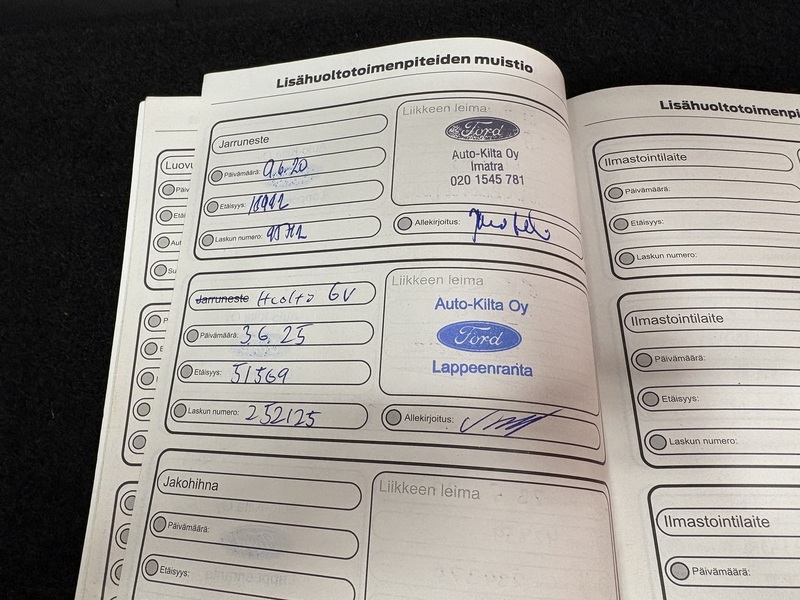 Lisähuoltotoimenpiteiden muistio
Jarruneste
Päivämäärä: 9.6.20
Etäisyys:
Laskun numero:
Liikkeen leima
Ford
Auto-Kilta Oy
Imatra
020 1545 781
Allekirjoitus:
Jarruneste Huolto 6V
Päivämäärä: 3.6.25
Etäisyys: 51569
Laskun numero: 252125
Liikkeen leima
Auto-Kilta Oy
Ford
Lappeenranta
Allekirjoitus:
Jakohihna
Päivämäärä:
Etäisyys:
Liikkeen leima
Lisähuoltotoimenpi
Ilmastointilaite
Päivämäärä:
Etäisyys:
Laskun numero:
Ilmastointilaite
Päivämäärä:
Etäisyys:
Laskun numero:
Ilmastointilaite
Päivämäärä: